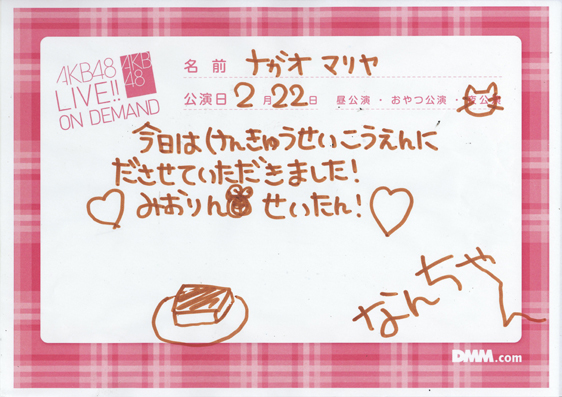 AKB48
LIVE!!
ON DEMAND
AKB
48
名前 ナガオ マリヤ
公演日 2月22日 昼公演・おやつ公演・夜公演
今日はけんきゅうせいこうえんに
ださせていただきました!
みおりん せいたん!
なんちゃん
DMM.com